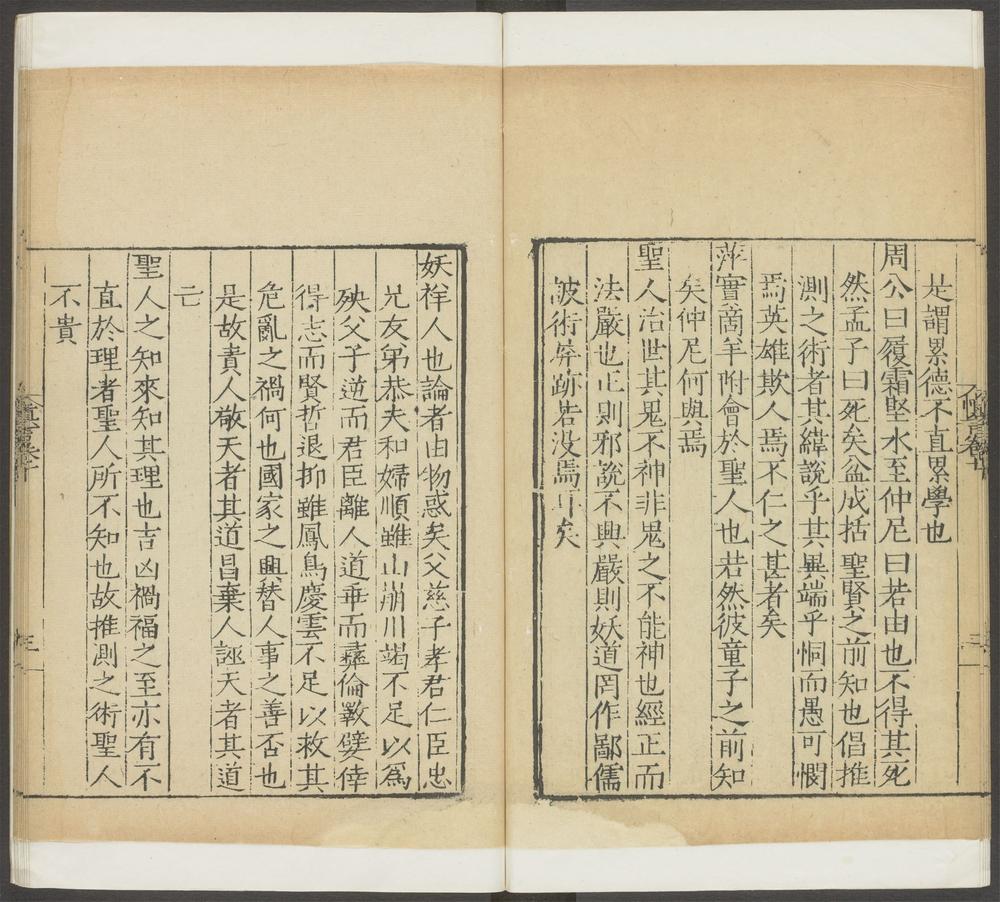 是謂累德不直累學也
周公曰履霜堅氷至仲尼曰若由也不得其死
然孟子曰死矣盆成括聖賢之前知也倡推
測之術者其緯說乎其異端乎恫而愚可憫
焉英雄欺人焉不仁之甚者矣
萍實商羊附會於聖人也若然彼童子之前知
矣仲尼何與焉
聖人治世其鬼不神非鬼之不能神也經正而
法嚴也正則邪說不興嚴則妖道罔作鄙儒
詖術屏跡若没焉耳矣
妖祥人也論者由物惑矣父慈子孝君仁臣忠
兄友弟恭夫和婦順雖山崩川竭不足以爲
殃父子逆而君臣離人道乖而彝倫斁孽倖
得志而賢哲退抑雖鳳鳥慶雲不足以救其
危亂之禍何也國家之興替人事之善否也
是故責人敬天者其道昌棄人誣天者其道
亡
聖人之知來知其理也吉凶禍福之至亦有不
直於理者聖人所不知也故推測之術聖人
不貴
慎言卷十
三